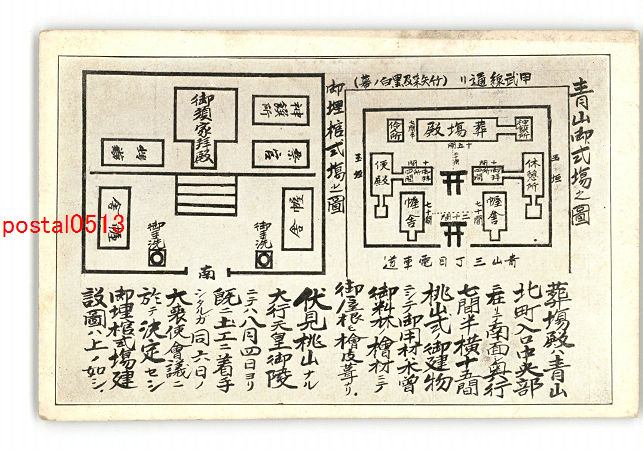 青山御式場之圖
甲武線通リ(竹矢來及黑白ノ幕)
葬場殿
神饌所
休憩所
便殿
幄舍
幄舍
玉垣
玉垣
青山三丁目電車道
御埋棺式場之圖
神饌所
御須家拝殿
幄舍
幄舍
御手洗
御手洗
南
葬場殿ハ青山
北町入口中央部
ニ在リテ南面シ奥行
七間半横十五間
桃山式御建物
ニシテ御用材木曽
御料林檜材ニテ
御屋根ヒ檜皮葺リ
伏見桃山ナル
大行天皇御陵
ニテハ八月四日ヨリ
既ニ土工ニ着手
シツルガ同六日ノ
大喪使會議ニ
於テ決定セシ
御埋棺式場建
設圖ハ上ノ如シ
postal0513